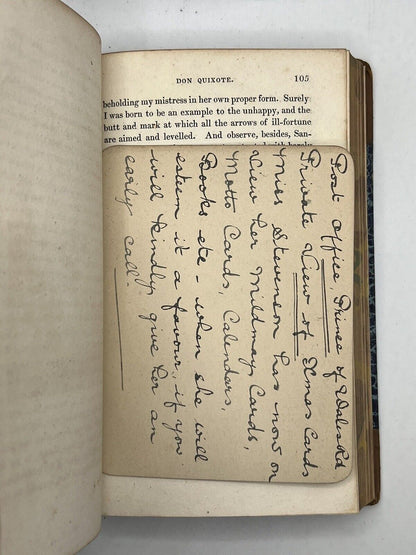 DON QUIXOTE. 105
beholding my mistress in her own proper form. Surely
I was born to be an example to the unhappy, and the
butt and mark at which all the arrows of ill-fortune
are aimed and levelled. And observe, besides, San-
Post Office, Prince of Wales Rd
Private View of Xmas Cards
Miss Stevenson has now on
View her Mildmay Cards,
Motto Cards, Calendars,
Books etc - when she will
esteem it a favour if you
will kindly give her an
early call.